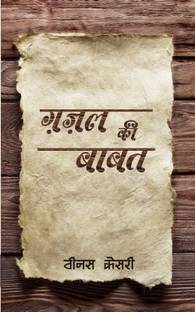 ग़ज़ल की
बाबत
वीनस केसरी